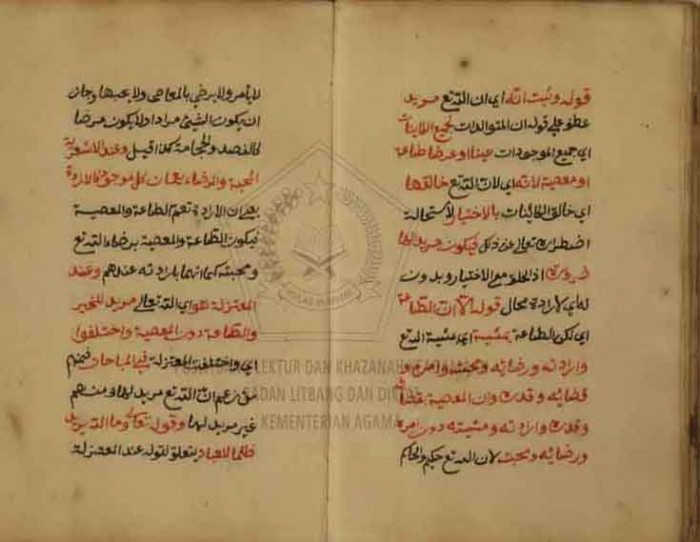 قوله وثبت انه اي ان الله تع مريد
عطف على قوله ان المتولدات لجميع الكاينات
اي جميع الموجودات عينا او عرضا طاعة
او معصية لانه اي لان الله تع خالقها
اي خالق الكائنات بالاختيار لاستحالة
اضطراره تعالى عن ذلك فيكون مريدا لها
ضرورة اذ الخلق مع الاختيار وبدون
الارادة محال قوله الا ان الطاعة
اي لكن الطاعة بمشيئة اي مشيئة الله تع
وارادته ورضائه ومحبته وامره و
قضائه وقدره وان المعصية بقضائه
وقدره وارادته ومشيئته دون امره
ورضائه ومحبته لان الله تع حكيم والحكيم
لا يأمر ولا يرضى بالمعاصي ولا يحبها وجاز
ان يكون الشيء مرادا ولا يكون مرضا
كالفصد والحجامة كذا قيل وعند الاشعرية
المحبة والرضاء يعمان كل موجود كالارادة
يعني ان الارادة تعم الطاعة والمعصية
فيكون الطاعة والمعصية برضاء الله تع
ومحبته كما انهما بارادته عندهم وعند
المعتزلة هو اي الله تعالى مريد للخير
والطاعة دون المعصية واختلفوا
اي واختلفت المعتزلة في المباحات فمنهم
من زعم ان الله تع مريد لها ومنهم
غير مريد لها وقوله تعالى وما الله يريد
ظلما للعباد يتعلق لقوله عند المعتزلة
PUSLITBANG LEKTUR DAN KHAZANAH KEAGAMAAN
BADAN LITBANG DAN DIKLAT
KEMENTERIAN AGAMA